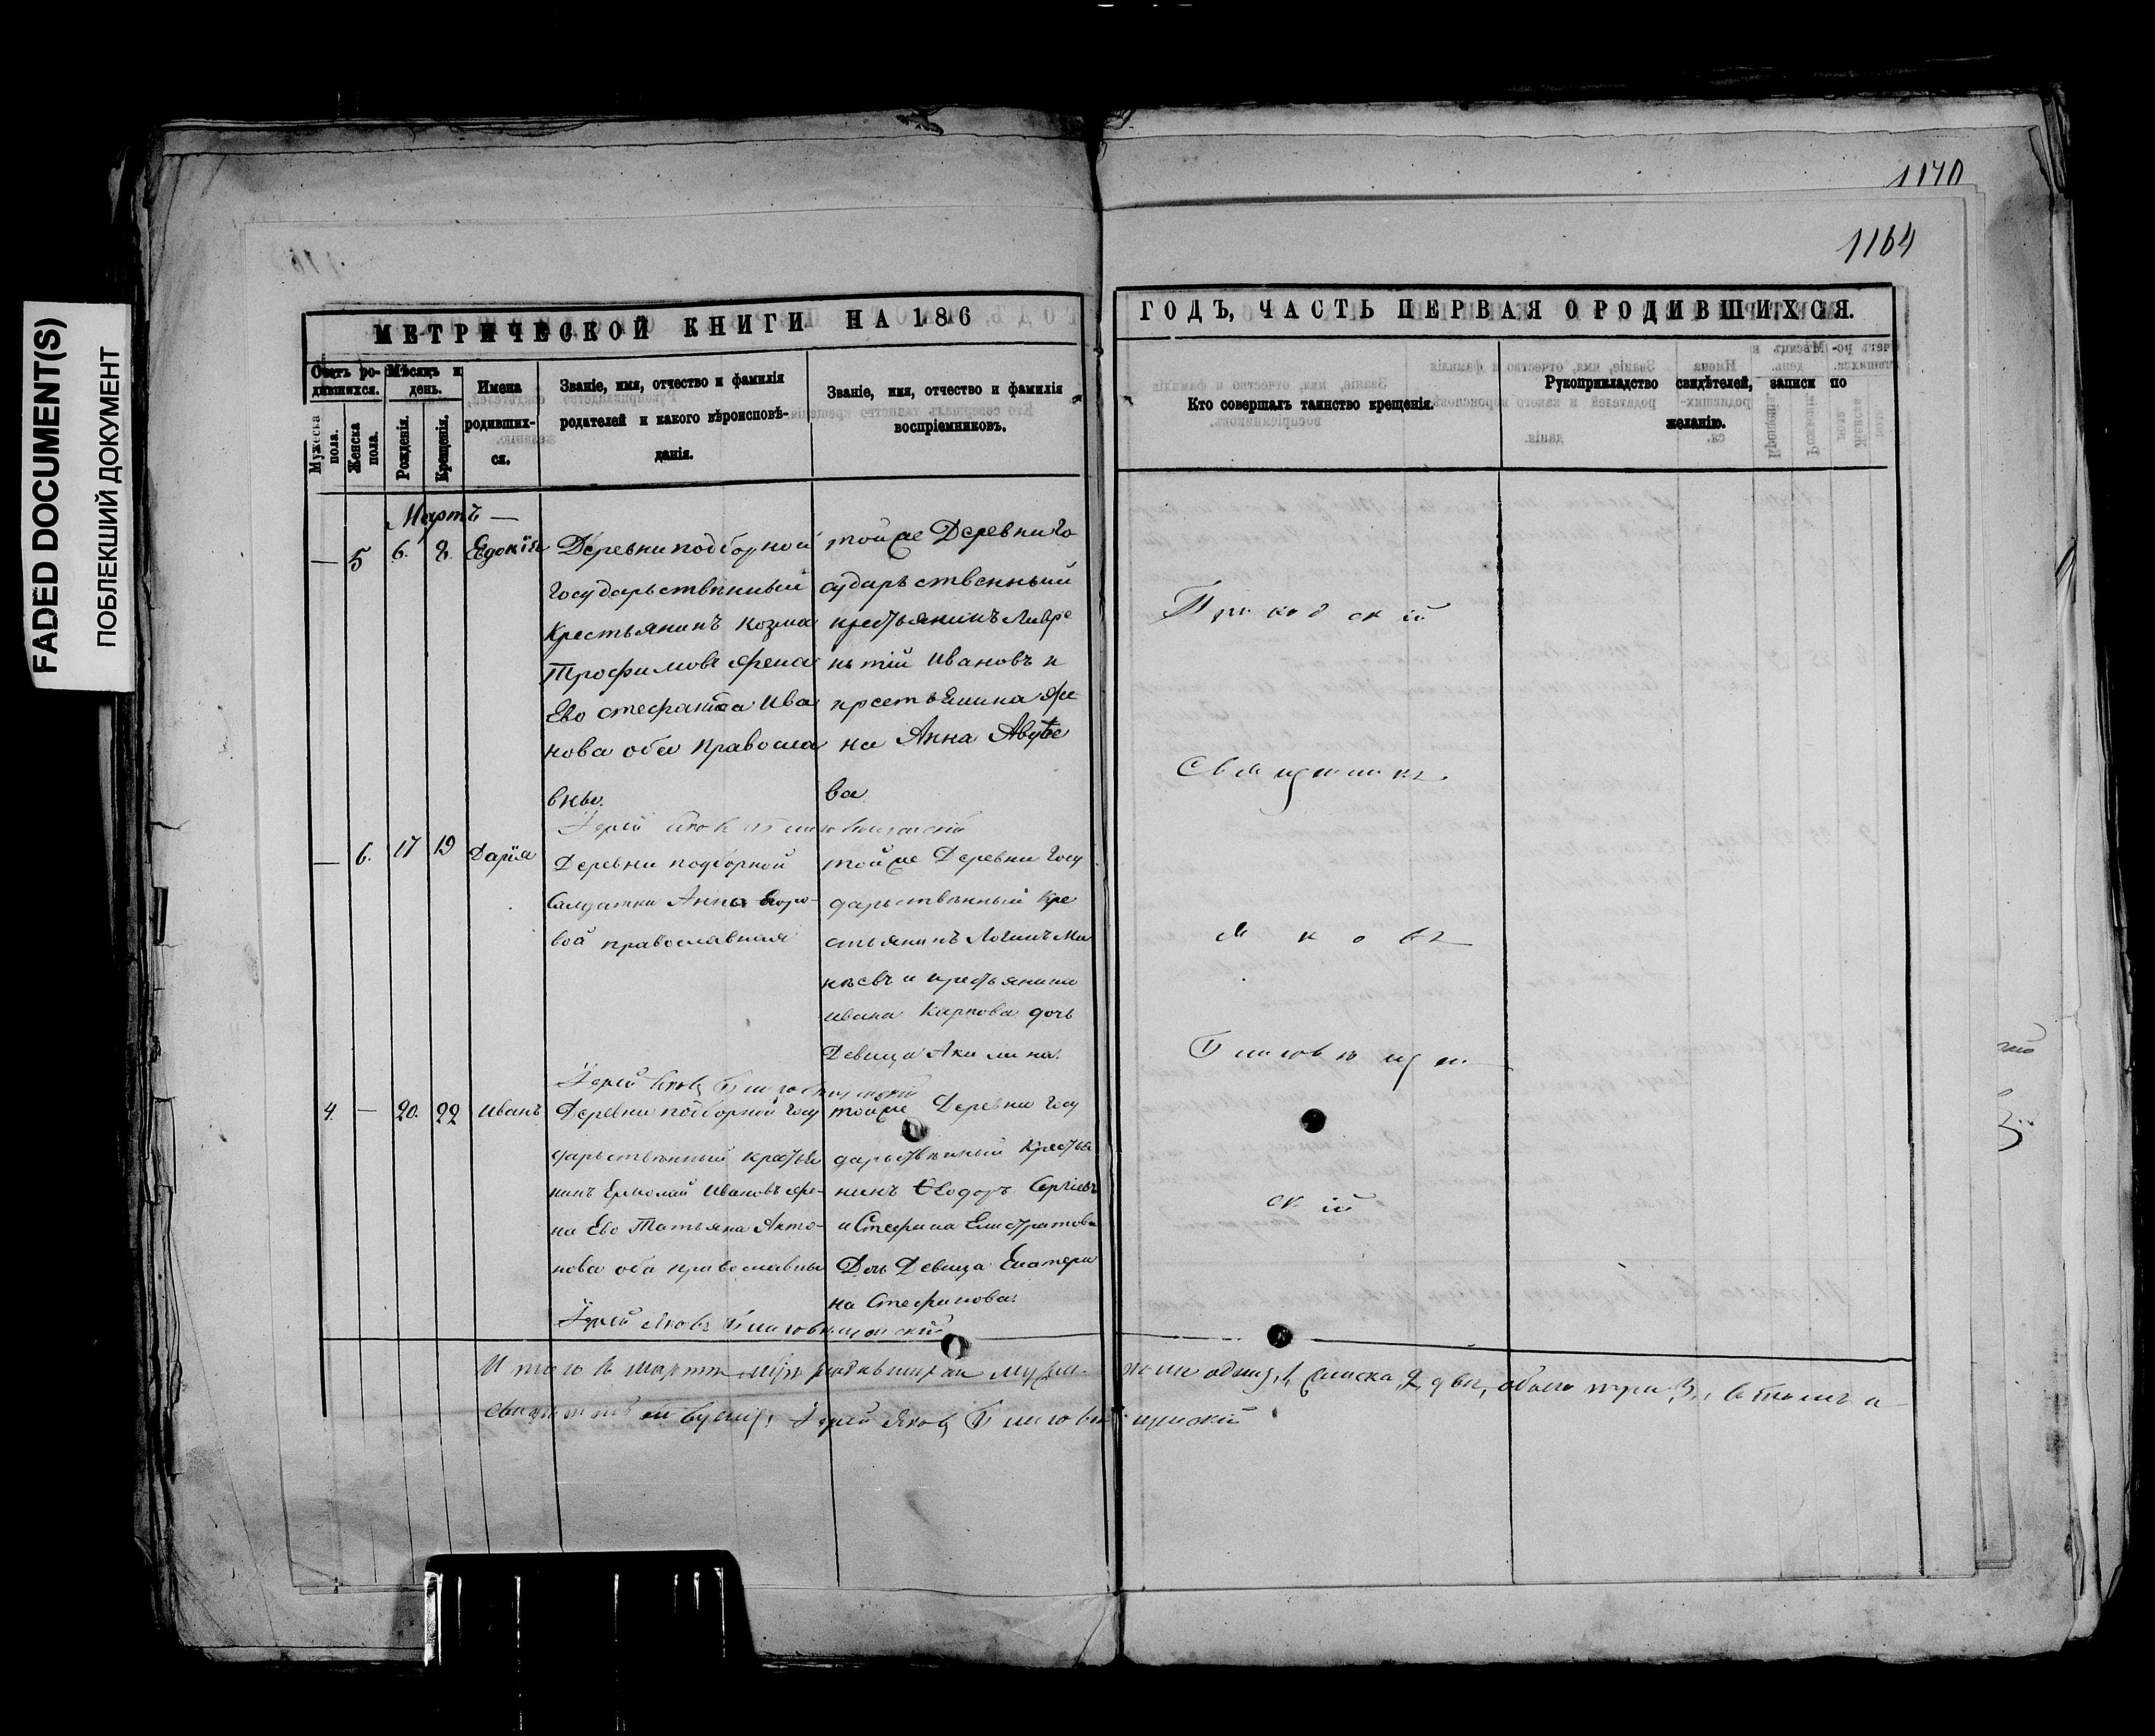 FADED DOCUMENT(S)
ПОБЛЕКШИЙ ДОКУМЕНТ
1170
1164
МЕТРИЧЕСКОЙ КНИГИ НА 186
ГОДЪ, ЧАСТЬ ПЕРВАЯ О РОДИВШИХСЯ.
Счетъ ро-
дившихся.
Мужеска
пола.
Женска
пола.
Мѣсяцъ и
день.
Рожденія.
Крещенія.
Имена
родивших-
ся.
Званіе, имя, отчество и фамилія
родителей и какого вѣроисповѣ-
данія.
Званіе, имя, отчество и фамилія
воспріемниковъ.
Кто совершалъ таинство крещенія.
Рукоприкладство свидѣтелей, записи по
желанію.
Мартъ —
— 5 6. 8. Едокія
Деревни подборной
Государьственный
Крестьянинъ Козма
Трофимовъ жена
Ево стефанида Ива
нова оба Правосла
вны.
тойже Деревни Го
сударьственный
крестьянинъ Лавре
нтій Ивановъ и
Же
на Анна
ва
Іерей Яковъ Благовѣщенскій
— 6. 17 19 Дарія
Деревни подборной
Салдатки Анны Егоро-
вой православная
тойже Деревни Госу
дарьственный Кре
стьянинъ Логинъ Ми
нѣевъ и крестьянина
ивана Карпова дочь
Девица Акилина.
Іерей Яковъ Благовѣщенскій
4. — 20. 22 Иванъ
Деревни подборной Госу
дарьственный крестья
нинъ Ермолай Ивановъ же-
на Ево Татьяна Анто-
нова оба православны
тойже Деревни Госу
дарьственный Крестья
нинъ Ѳеодоръ Сергіевъ
и Стефана Елистратова
Дочь Девица Екатери
на Стефанова.
Іерей Яковъ Благовѣщенскій
Приходскій
Священникъ
Яковъ
Благовѣщен
скій
Итого въ мартѣ родившихся муж. одинъ 1, женска 2, двѣ, обоего три 3, въ томъ и
Іерей Яковъ Благовѣщенскій